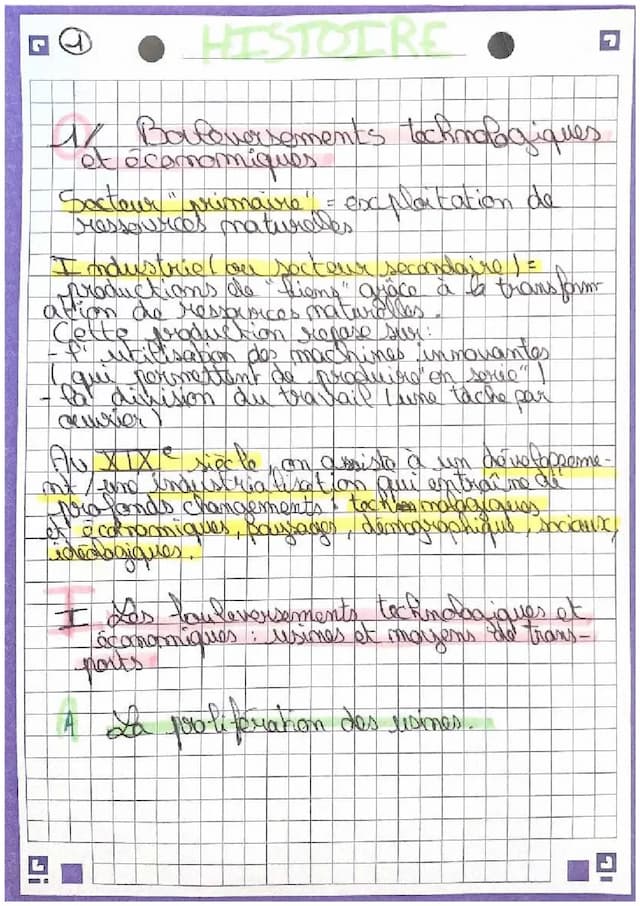 1
HISTOIRE
1/ Bouleversements technologiques
et économiques
Secteur "primaire" = exploitation de
ressources naturelles
Industrie (ou secteur secondaire) =
productions de "biens" grâce à la transform
ation de ressources naturelles.
Cette production repose sur :
- l'utilisation des machines innovantes
(qui permettent de produire "en serie")
- la division du travail (une tâche par
ouvrier)
Au XIXe siècle, on assiste à un développeme-
nt / une industrialisation qui entraîne de
profonds changements : technologiques
et économiques, paysages, démographique, sociaux,
idéologiques.
I Les bouleversements technologiques et
économiques : usines et moyens de trans-
ports
A La prolifération des usines.